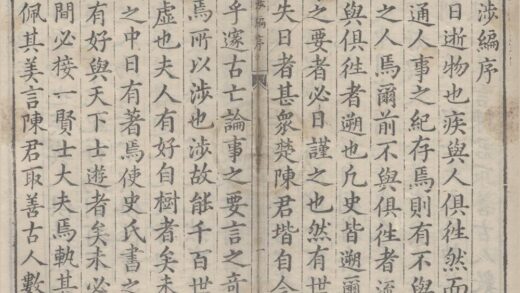 涉編序
日逝物也疾與人俱徃然而
通人事之紀存焉則有不與
之人焉爾前不與俱徃者
與俱徃者遡也凢史皆遡爾
之要者必日謹之也然有世
失日者甚衆楚陳君堦自今
涉編序
乎邃古亡論事之要言之竒
焉所以涉也涉故能千百世
虛也夫人有好自樹者矣
之中日有著焉使史氏書之
有好與天下士遊者矣未必
間必接一賢士大夫焉執其
佩其美言陳君取善古人數